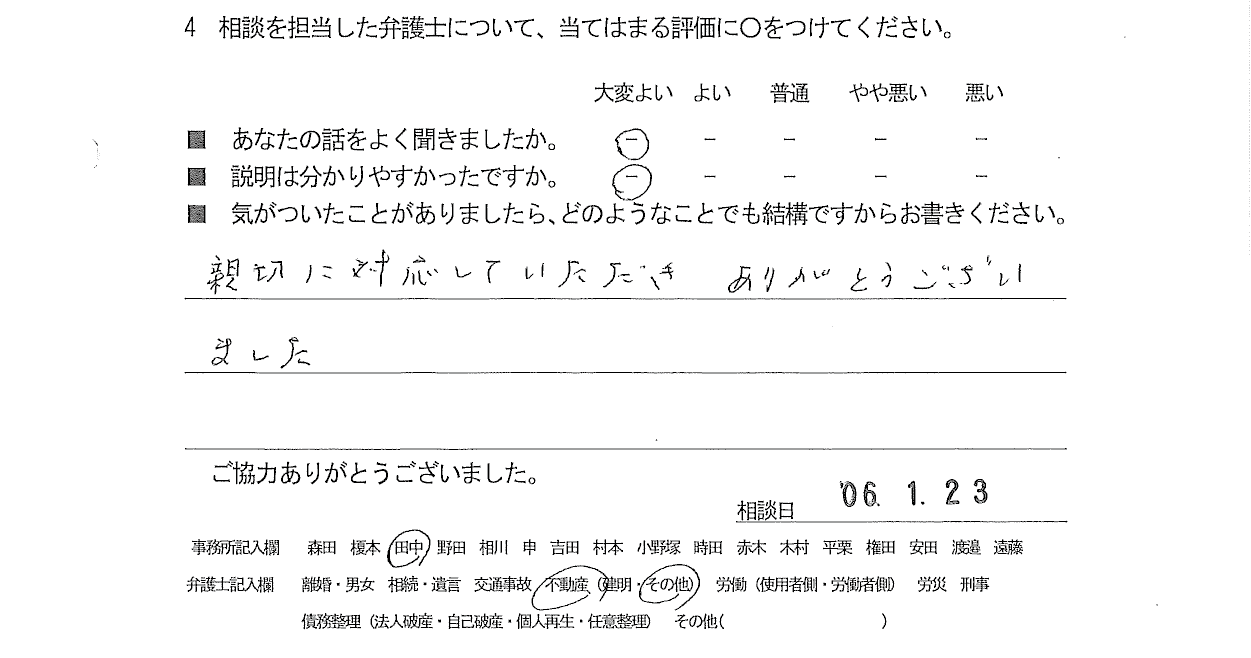 4 相談を担当した弁護士について、当てはまる評価に○をつけてください。
大変よい よい 普通 やや悪い 悪い
■ あなたの話をよく聞きましたか。 － － － － －
■ 説明は分かりやすかったですか。 － － － － －
■ 気がついたことがありましたら、どのようなことでも結構ですからお書きください。
親切に対応していただき ありがとうござい
ました
ご協力ありがとうございました。
相談日 '06. 1. 23
事務所記入欄 森田 榎本 田中 野田 相川 申 吉田 村本 小野塚 時田 赤木 木村 平栗 権田 安田 渡邉 遠藤
弁護士記入欄 離婚・男女 相続・遺言 交通事故 不動産（建明・その他） 労働（使用者側・労働者側） 労災 刑事
債務整理（法人破産・自己破産・個人再生・任意整理） その他（ ）